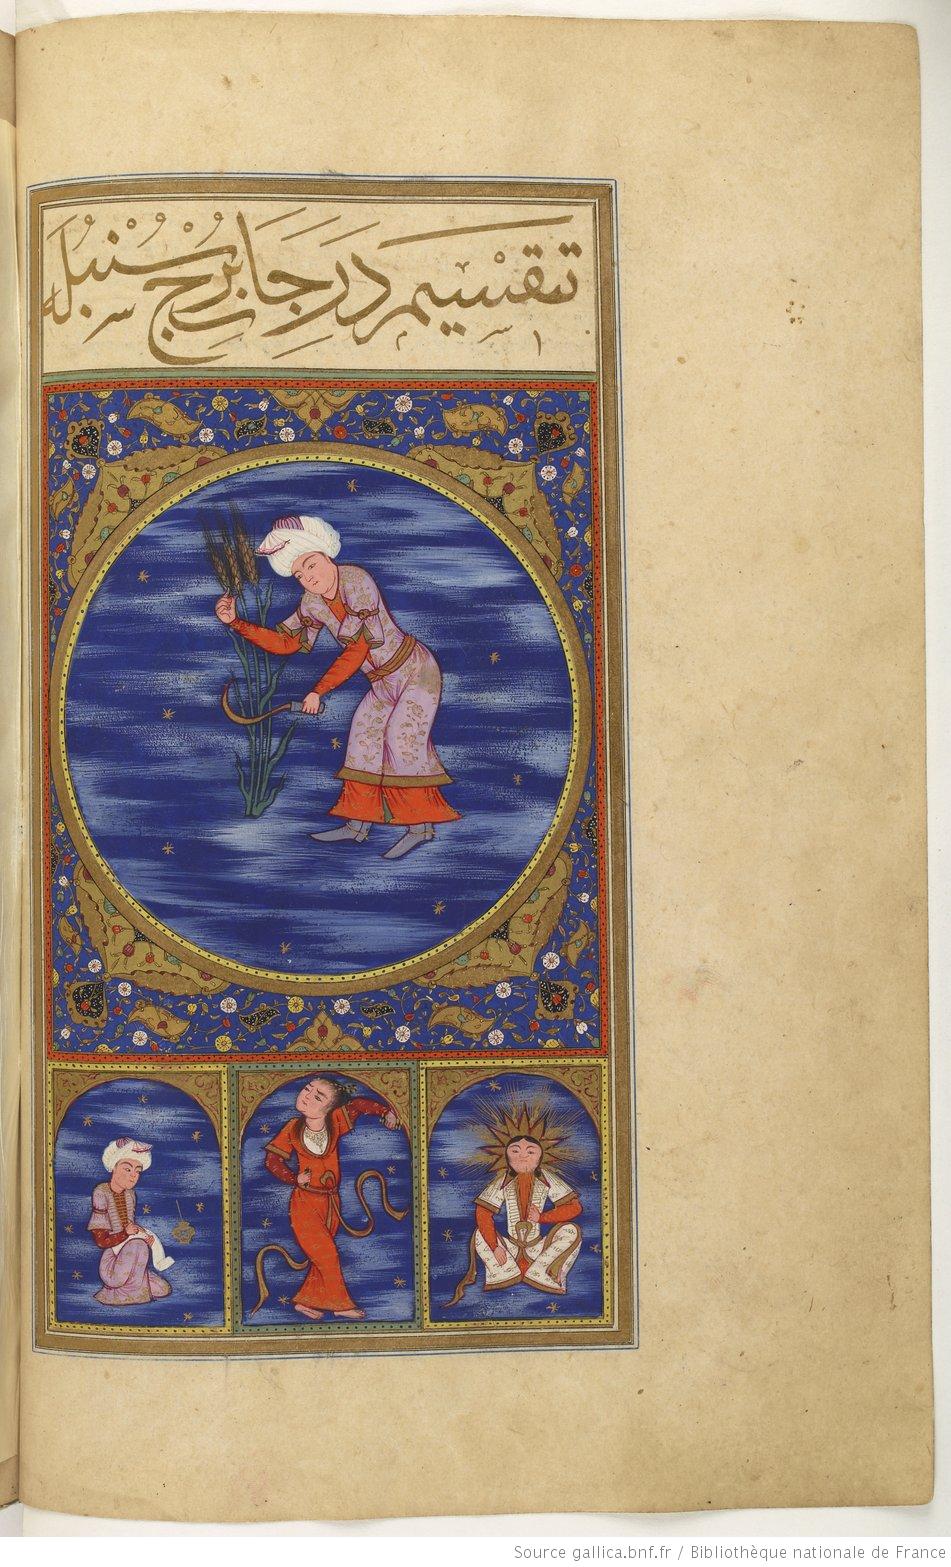 تقسیم دَرَجَاتِ بُرجِ سُنْبُلَه
Source gallica.bnf.fr / Bibliothèque nationale de France